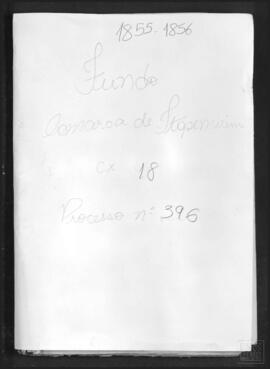 1855-1856
Fundo
Comarca de Itapemirim
cx 18
Processo nº 396